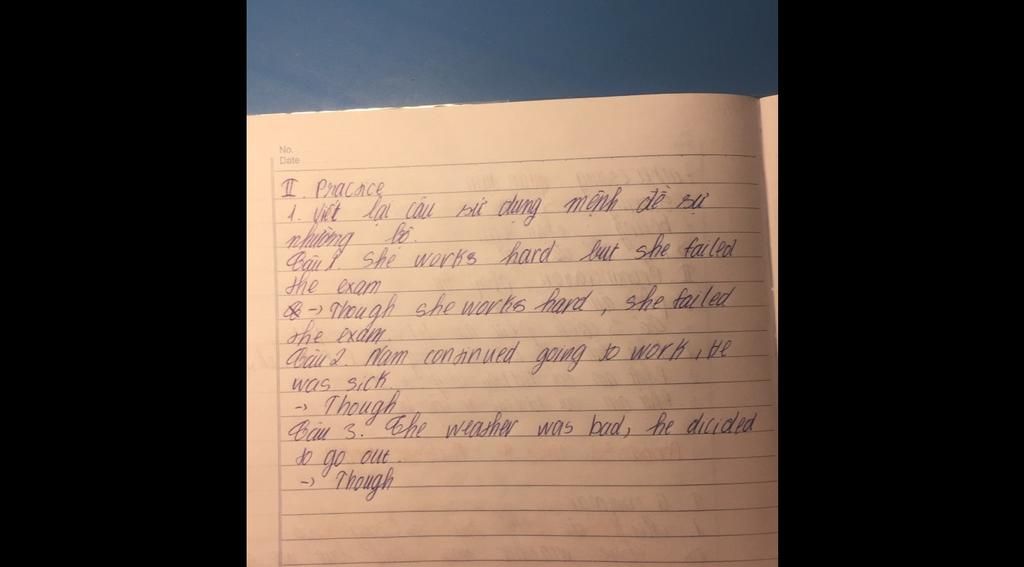 No.
Date
II. Practice
1. Viết lại câu sử dụng mệnh đề sự
nhường bộ.
Câu 1. She works hard but she failed
the exam
-> Though she works hard, she failed
the exam.
Câu 2. Nam continued going to work, He
was sick
-> Though
Câu 3. The weather was bad, he dicided
to go out.
-> Though